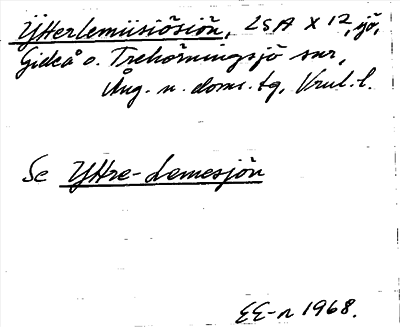 Ytterlemiisiösiön, LSA X 12, sjö,
Gideå o. Trehörningsjö snr,
Ång. n. doms. tg, Vnul. l.
Se Yttre-Lemesjön
EE-n 1968.